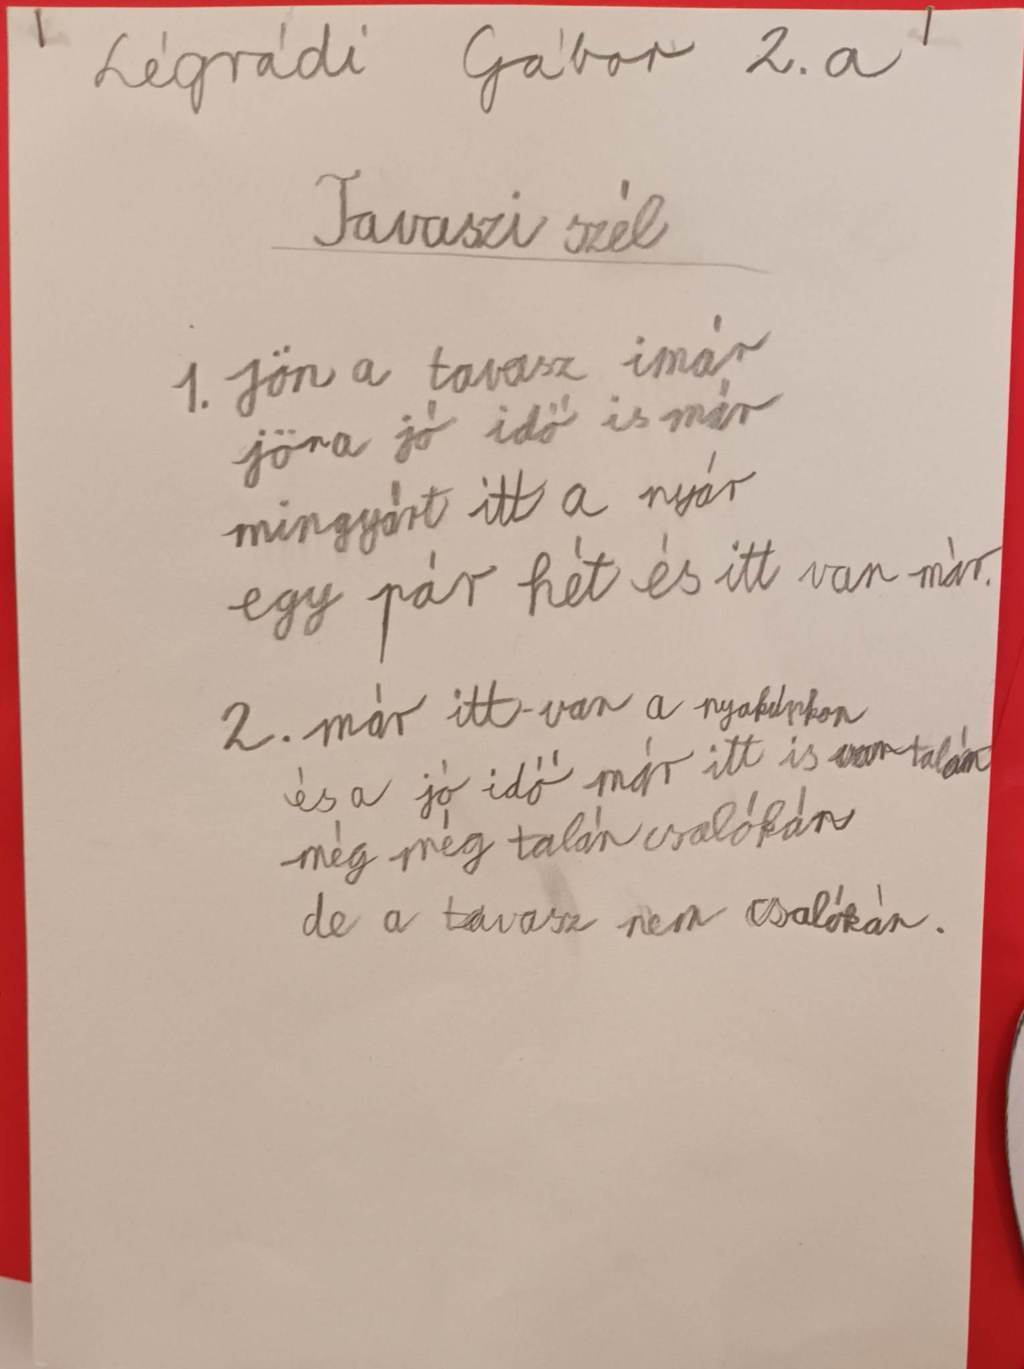 Légrádi Gábor 2.a
Tavaszi szél
1. jön a tavasz imár
jön a jó idő is már
mingyárt itt a nyár
egy pár hét és itt van már.
2. már itt van a nyakúnkon
és a jó idő már itt is van talán
még még talán csalókán
de a tavasz nem csalókán.